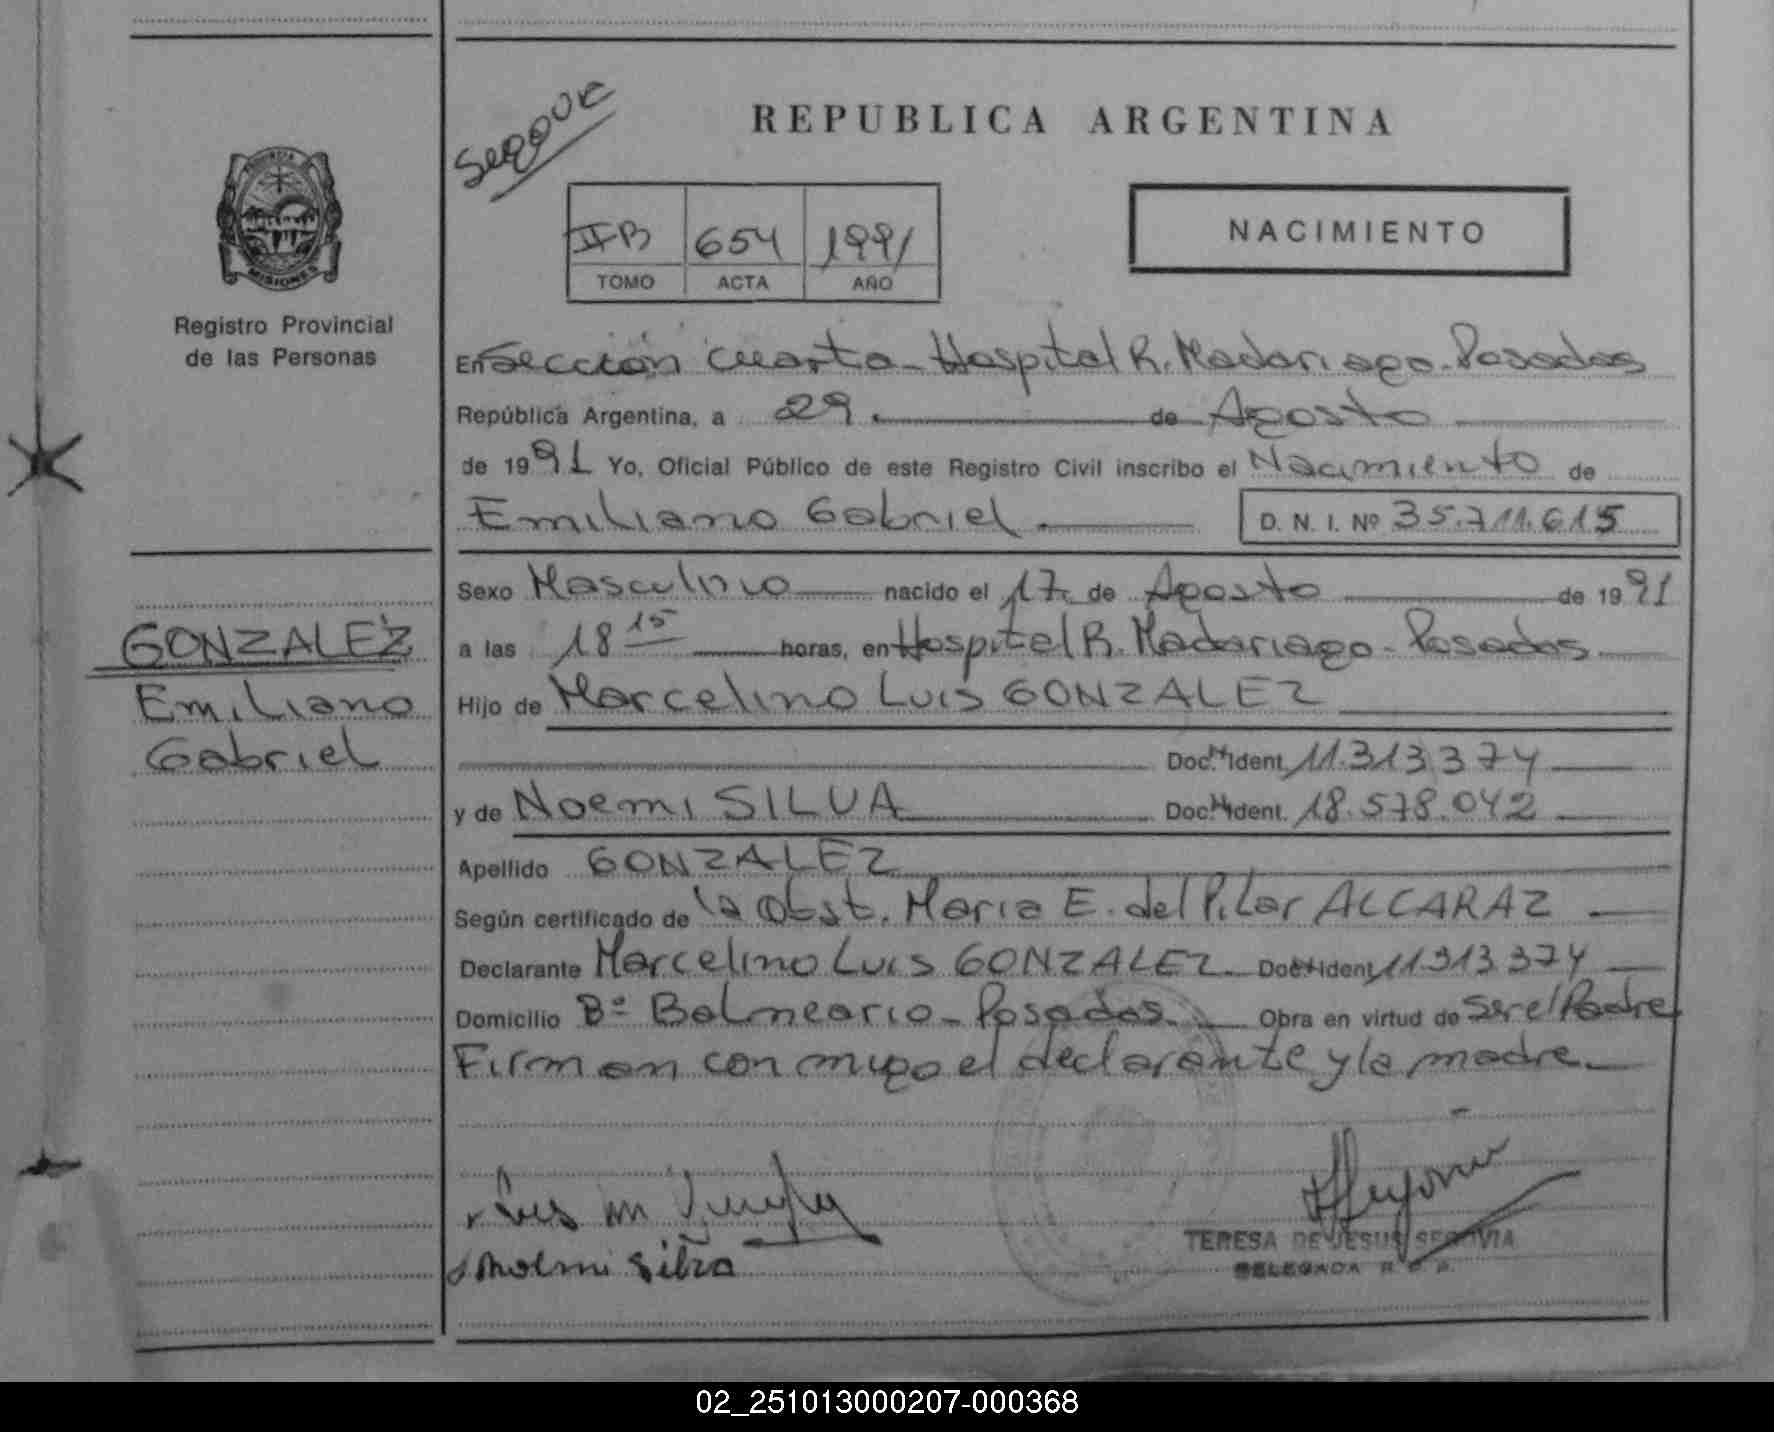 REPUBLICA ARGENTINA
PROVINCIA
MISIONES
Registro Provincial
de las Personas
IIB 654 1991
TOMO ACTA AÑO
NACIMIENTO
En Sección cuarta - Hospital R. Madariaga - Posadas
República Argentina, a 29 de Agosto
de 1991 Yo, Oficial Público de este Registro Civil inscribo el Nacimiento de
Emiliano Gabriel D. N. I. Nº 35.711.615
Sexo Masculino nacido el 17 de Agosto de 1991
a las 18 15 horas, en Hospital R. Madariaga - Posadas
Hijo de Marcelino Luis GONZALEZ
Doc. Ident. 11.313.374
y de Noemi SILVA Doc. Ident. 18.578.042
Apellido GONZALEZ
Según certificado de la Obst. Maria E. del Pilar ALCARAZ
Declarante Marcelino Luis GONZALEZ Doc. Ident. 11313374
Domicilio Bº Balneario - Posadas Obra en virtud de ser el Padre
Firman con migo el declarante y la madre
Noemi Silva
TERESA DE JESUS SEGOVIA
DELEGADA R. C. P.
GONZALEZ
Emiliano
Gabriel
02_251013000207-000368